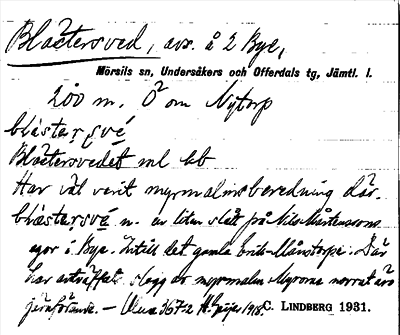 Blæstersved, avs. å 2 Bye,
Mörsils sn, Undersåkers och Offerdals tg, Jämtl. l.
200 m. Ö om Nytorp
blæstarsvé
Blæstersvedet ml kb
Har väl varit myrmalmsberedning där.
blæstarsvé n. en liten slått på Nils Mårtenssons
egor i Bye. Intill det gamla Måns torpe. Där
har anträffats slagg av myrmalm. Myrarna norrut äro
järnförande. — Ulma 367:2 H. Geijer 1918. C. LINDBERG 1931.